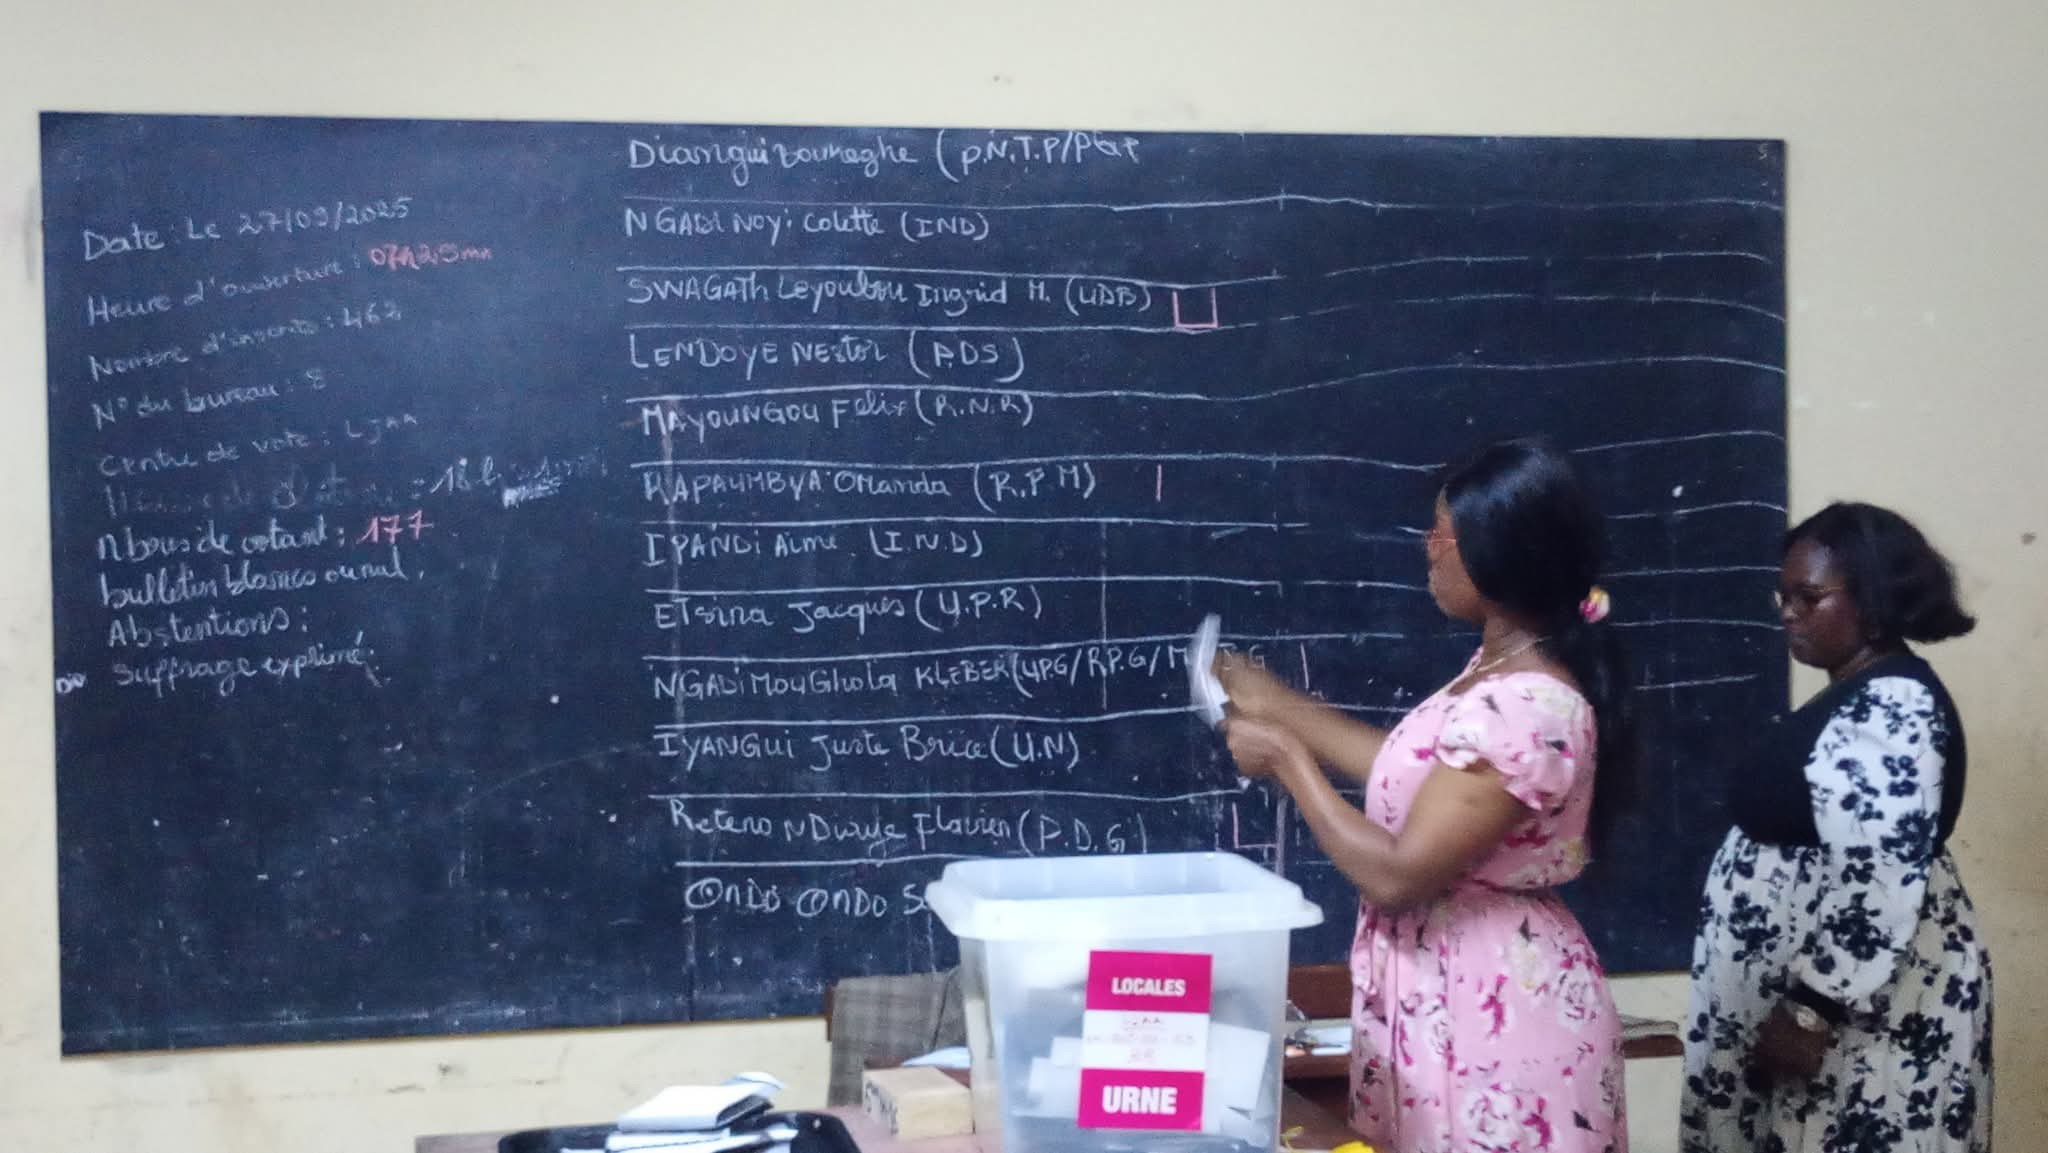 Date : Le 27/09/2025
Heure d'ouverture : 07h25mn
Nombre d'inscrits : 462
N° du bureau : 8
Centre de vote : LJAA
: 18h
nbres de votant : 177
bulletin blancs ou nul,
Abstentions :
Suffrage exprimé :
Dianguizoukeghe (P.N.T.P/
NGADI NOYi Colette (IND)
SWAGATh Leyoubou Ingrid M. (UDB)
LENDOYE NEstor (P.DS)
MAYOUNGOU Félix (R.N.R)
RAPAUMBYA Omanda (R.P.M)
IPANDi Aimé (I.N.D)
ETsina Jacques (U.P.R)
NGADiMouGhola KLEBER (UPG/R.P.G/M
IYANGUi Juste Brice (U.N)
Reteno NDiaye Flavien (P.D.G)
OnDo OnDo
LOCALES
LJAA
URNE